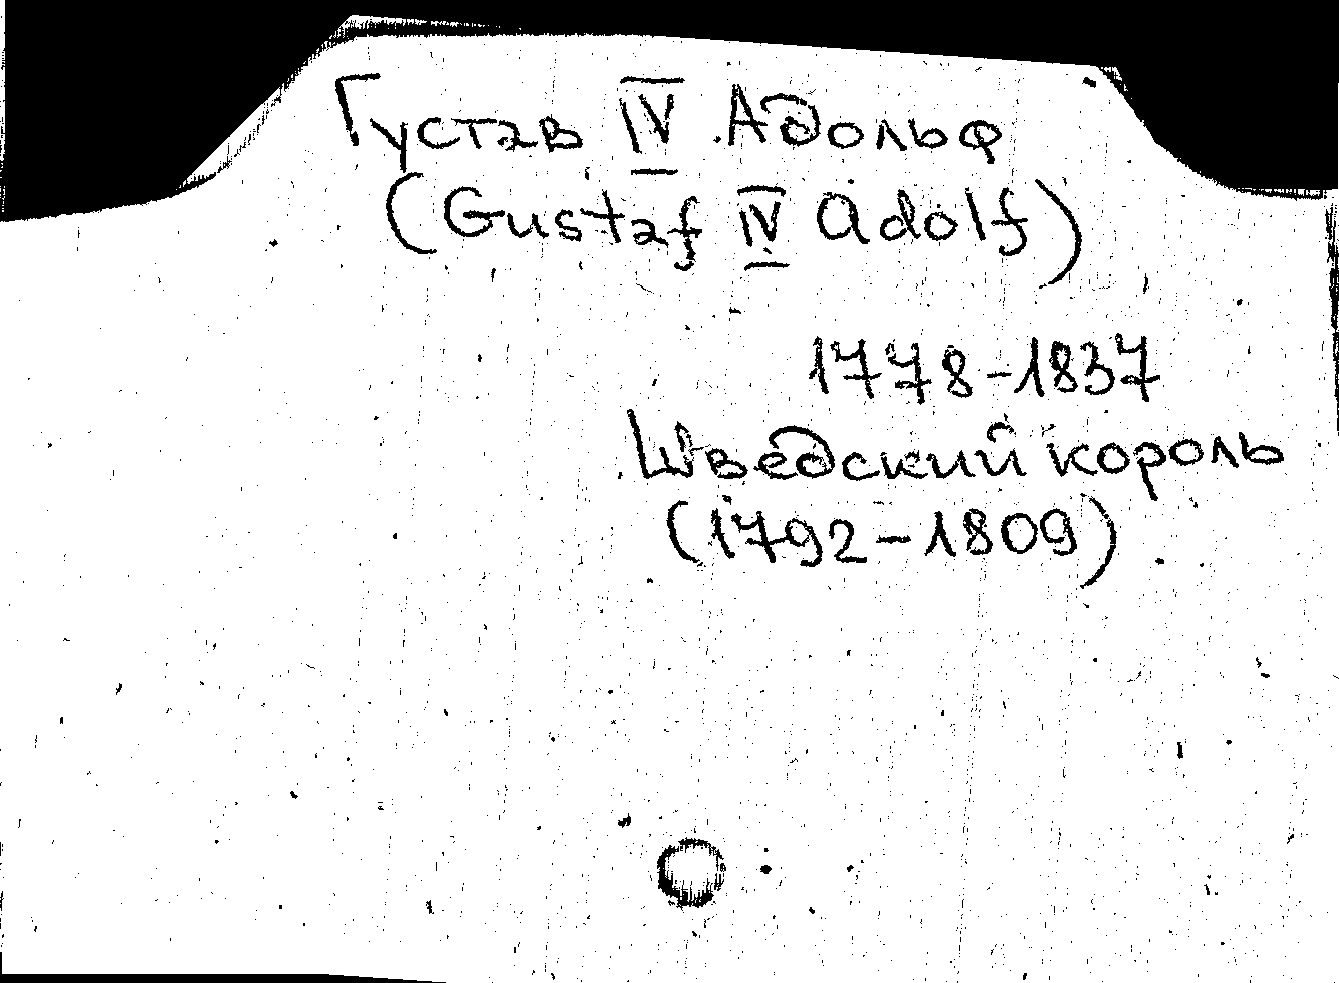 Густав IV Адольф
(Gustaf IV Adolf)
1778-1837
Шведский король
(1792-1809)